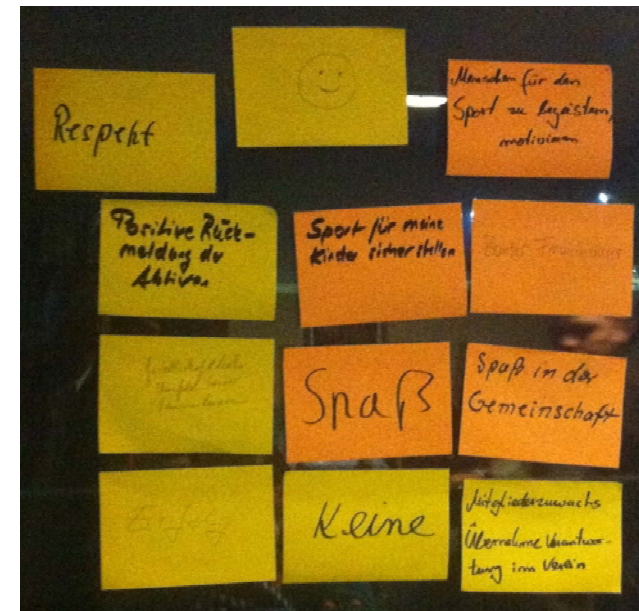 Respekt
Menschen für den
Sport zu begeistern,
motivieren
Positive Rück-
meldung der
Aktiven
Sport für meine
Kinder sicherstellen
Spaß
Spaß in der
Gemeinschaft
Erfolg
Keine
Mitgliederzuwachs
Übernahme Verantwor-
tung im Verein